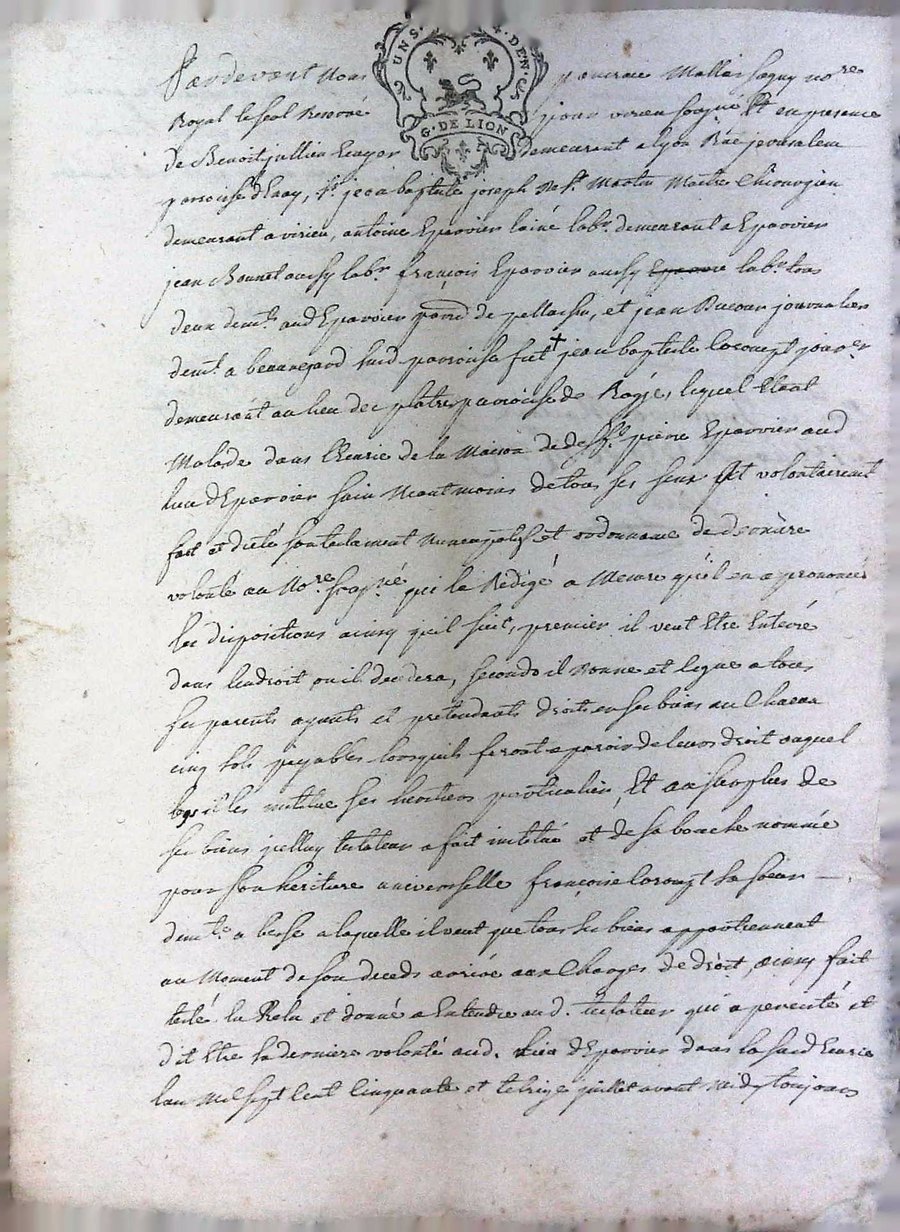 UNS · DEN · G. DE LION
Pardevant Nous Mallessaguy no.re
Royal le seal Reservé pour virieu soussigné Et en presence
de Benoit jullien demeurant a lyon Rüe jerusalem
parroisse d'Enay, Sr. jean baptiste joseph de St. Martin Maitre Chirurgien
demeurant a virieu, antoine Eparvier lainé labr. demeurant a Eparvier
jean Bonnet aussy labr. françois Eparvier aussy labr. tous
deux demts. aud Eparvier parrsse de pellassin, et jean Ducour journalier
demt. a beauregard susd parroisse fut + jean baptiste jour.er
demeurant au lieu des plâtres parroisse de lequel Etant
Malade dans l'Ecurie de la Maison de pierre Eparvier aud
lieu d'Eparvier sain Neantmoins de tous ses sens volontairement
fait et dicté son testament Nuncupatif et ordonnance de dernière
volonté au No.re sousg.né qui l'a Rédigé a Mesure qu'il en a prononcé
les dispositions ainsy qu'il suit, premier il veut Etre Enterré
dans l'endroit ou il decedera, secondo il Donne et legue a tous
ses parents ayants et pretendants droits en ses biens au Chacun
cinq sols payables lorsquils feront aparoir de leurs droit auquel
legs il les institue ses heritiers particuliers, Et au surplus de
ses biens jcelluy testateur a fait institué et de sa bouche nommée
pour son heritière universelle françoise sa soeur
demte. a laquelle il veut que tous ses biens appartiennent
au Moment de son deceds arrivé aux Charges de droit, ainsy fait
testé lu Relu et donné a Entendre aud. testateur qui a persisté et
dit Etre sa derniere volonté aud. lieu d'Eparvier dans la susd Ecurie
lan Mil sept cent Cinquante et le treize juillet avant Midy toujours